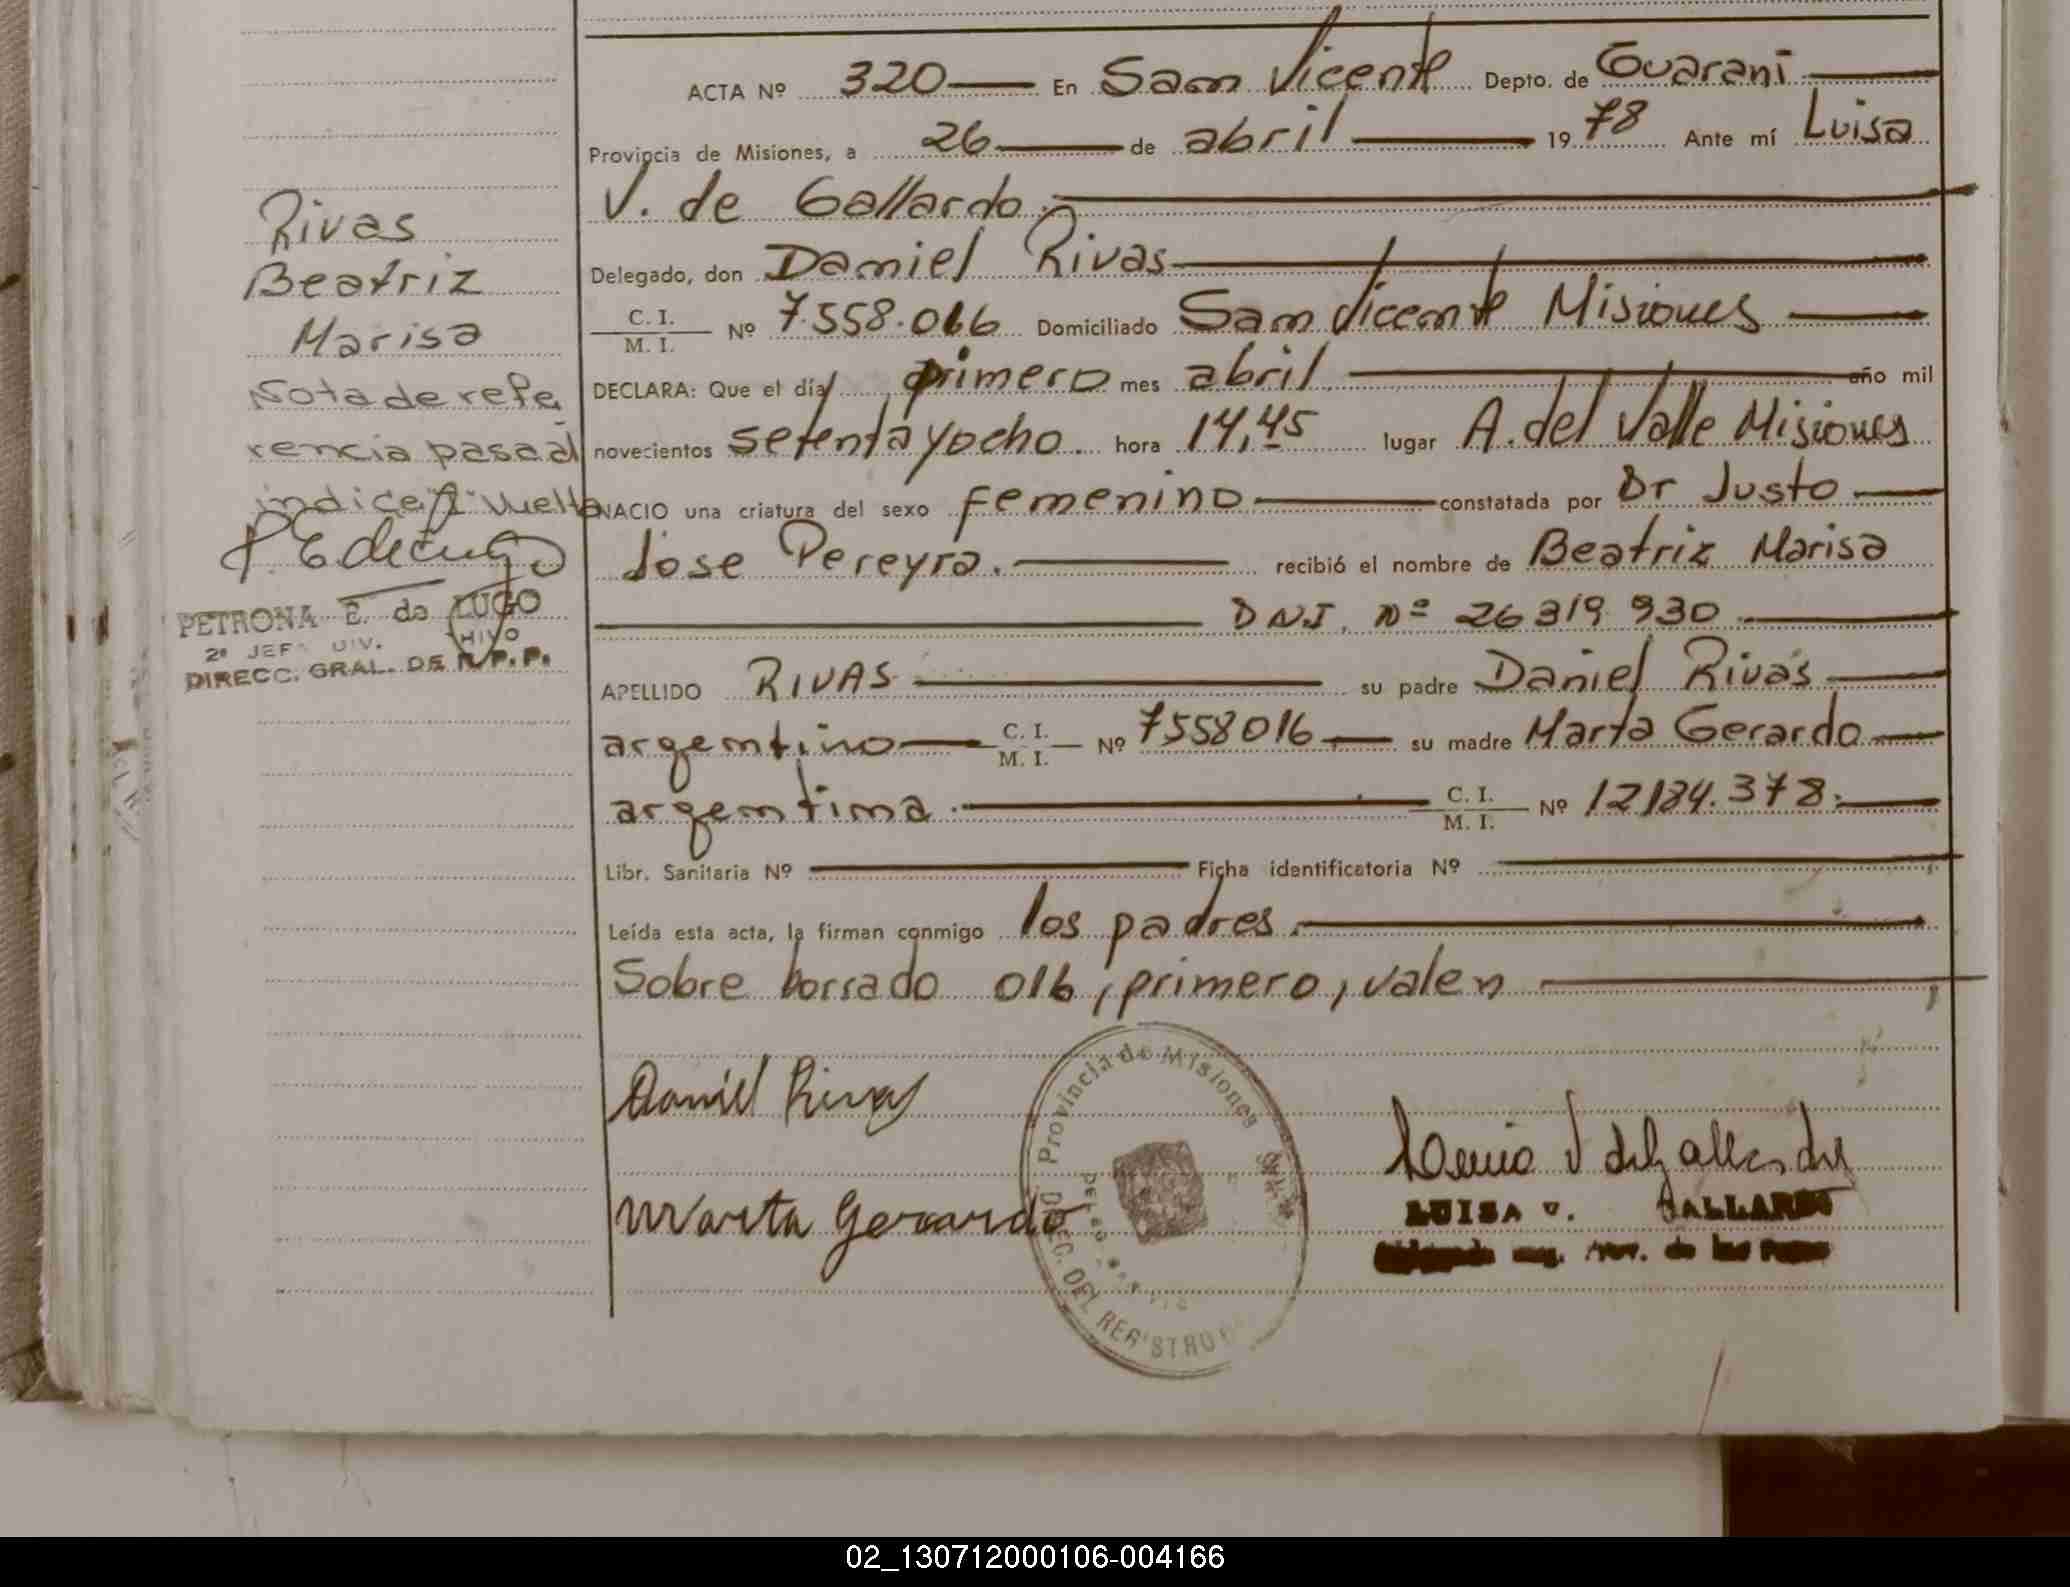 ACTA Nº 320 En San Vicente Depto. de Guarani
Provincia de Misiones, a 26 de abril 1978 Ante mí Luisa
V. de Gallardo.
Delegado, don Daniel Rivas
C. I. / M. I. Nº 7.558.016 Domiciliado San Vicente Misiones
DECLARA: Que el día primero mes abril año mil
novecientos setenta y ocho. hora 14,45 lugar A. del Valle Misiones
NACIO una criatura del sexo femenino constatada por Dr Justo
Jose Pereyra. recibió el nombre de Beatriz Marisa
D N.I. Nº 26 319 930
APELLIDO RIVAS su padre Daniel Rivas
argentino C. I. / M. I. Nº 7558016 su madre Marta Gerardo
argentina. C. I. / M. I. Nº 12184.378.
Libr. Sanitaria Nº Ficha identificatoria Nº
Leída esta acta, la firman conmigo los padres.
Sobre borrado 016, primero, valen
Rivas
Beatriz
Marisa
Nota de refe
rencia pasa al
indice A vuelta
PETRONA E. de LUGO
2º JEF DIV.
DIRECC. GRAL. DE R.P.P.
Daniel Rivas
Marta Gerardo
Provincia de Misiones
DEL REGISTRO
LUISA V. GALLARDO
de las
02_130712000106-004166